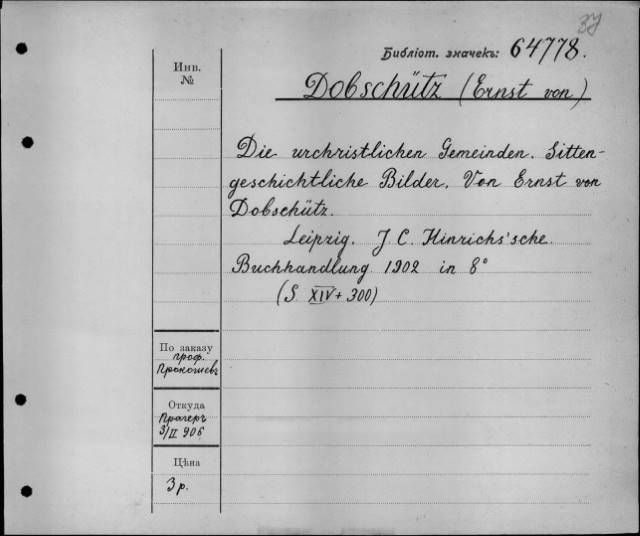 37
Библіот. значекъ: 64778.
Инв.
№
Dobschütz (Ernst von)
Die urchristlichen Gemeinden. Sitten-
geschichtliche Bilder. Von Ernst von
Dobschütz.
Leipzig. J. C. Hinrichs'sche.
Buchhandlung 1902 in 8°
(S. XIV + 300)
По заказу
проф.
Прокошевъ
Откуда
Прагеръ
3/II 906
Цѣна
3 р.